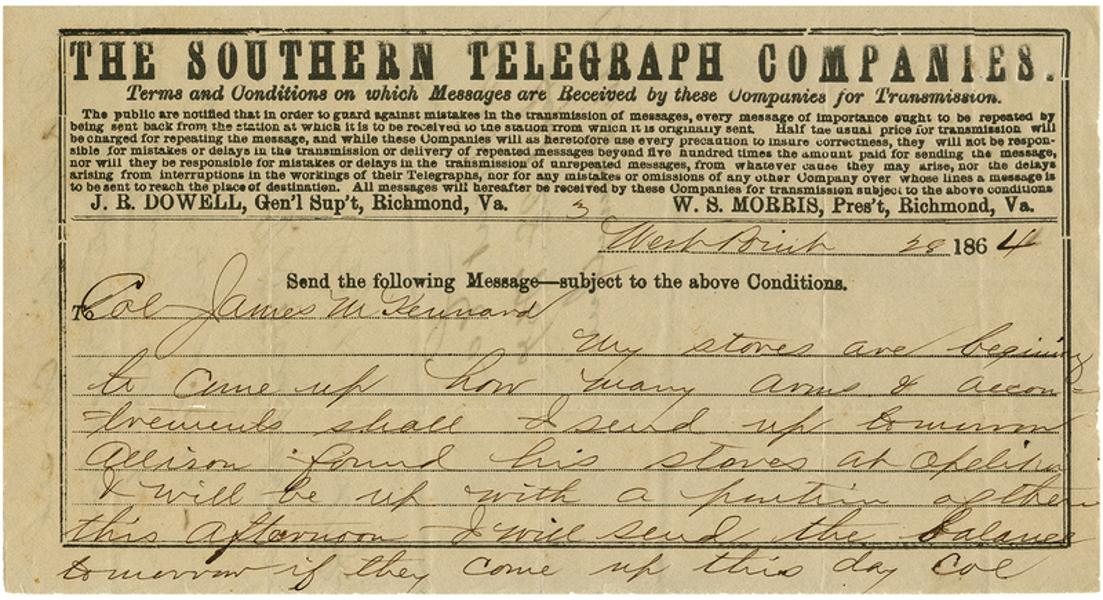 THE SOUTHERN TELEGRAPH COMPANIES.
Terms and Conditions on which Messages are Received by these Companies for Transmission.
The public are notified that in order to guard against mistakes in the transmission of messages, every message of importance ought to be repeated by
being sent back from the station at which it is to be received to the station from which it is originally sent. Half the usual price for transmission will
be charged for repeating the message, and while these Companies will as heretofore use every precaution to insure correctness, they will not be respon-
sible for mistakes or delays in the transmission or delivery of repeated messages beyond five hundred times the amount paid for sending the message,
nor will they be responsible for mistakes or delays in the transmission of unrepeated messages, from whatever cause they may arise, nor for delays
arising from interruptions in the workings of their Telegraphs, nor for any mistakes or omissions of any other Company over whose lines a message is
to be sent to reach the place of destination. All messages will hereafter be received by these Companies for transmission subject to the above conditions
J. R. DOWELL, Gen'l Sup't, Richmond, Va. 3 W. S. MORRIS, Pres't, Richmond, Va.
West Point 28 1864
Send the following Message—subject to the above Conditions.
To Col James M Kennard
My stores are begining
to come up how many arms & accou-
trements shall I send up tomorrow
Allison found his stores at Opelika
& will be up with a portion of them
this afternoon I will send the balance
tomorrow if they come up this day Col